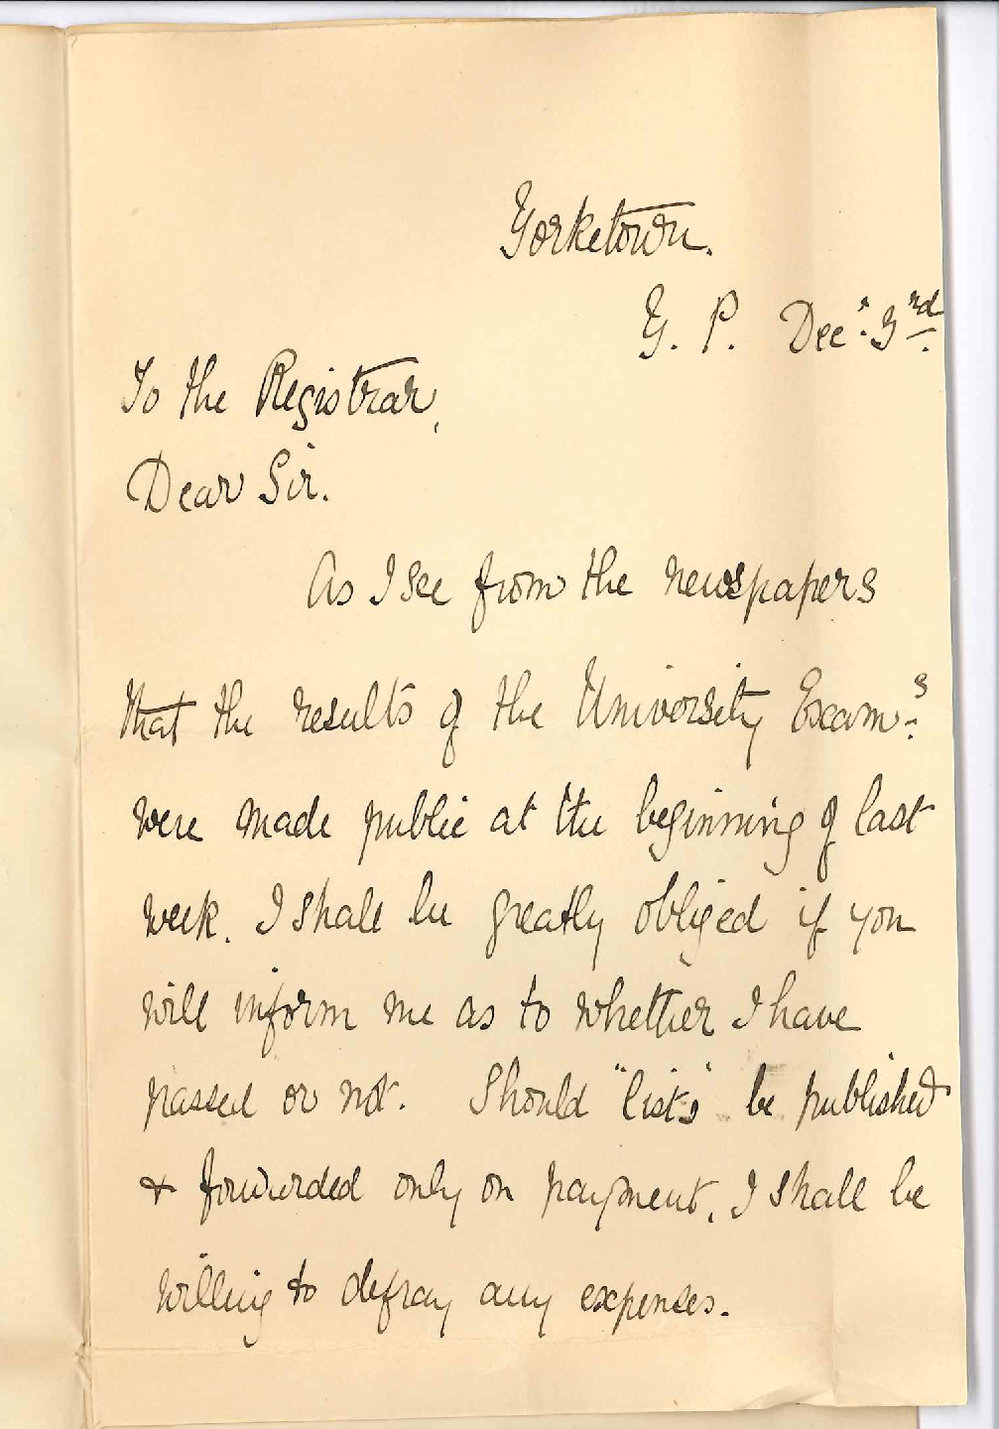 Yorketown.
Y. P. Dec. 3rd.
To the Registrar,
Dear Sir.
As I see from the newspapers
that the results of the University Exam.s
were made public at the beginning of last
week. I shall be greatly obliged if you
will inform me as to whether I have
passed or not. Should "lists" be published
& forwarded only on payment, I shall be
willing to defray any expenses.